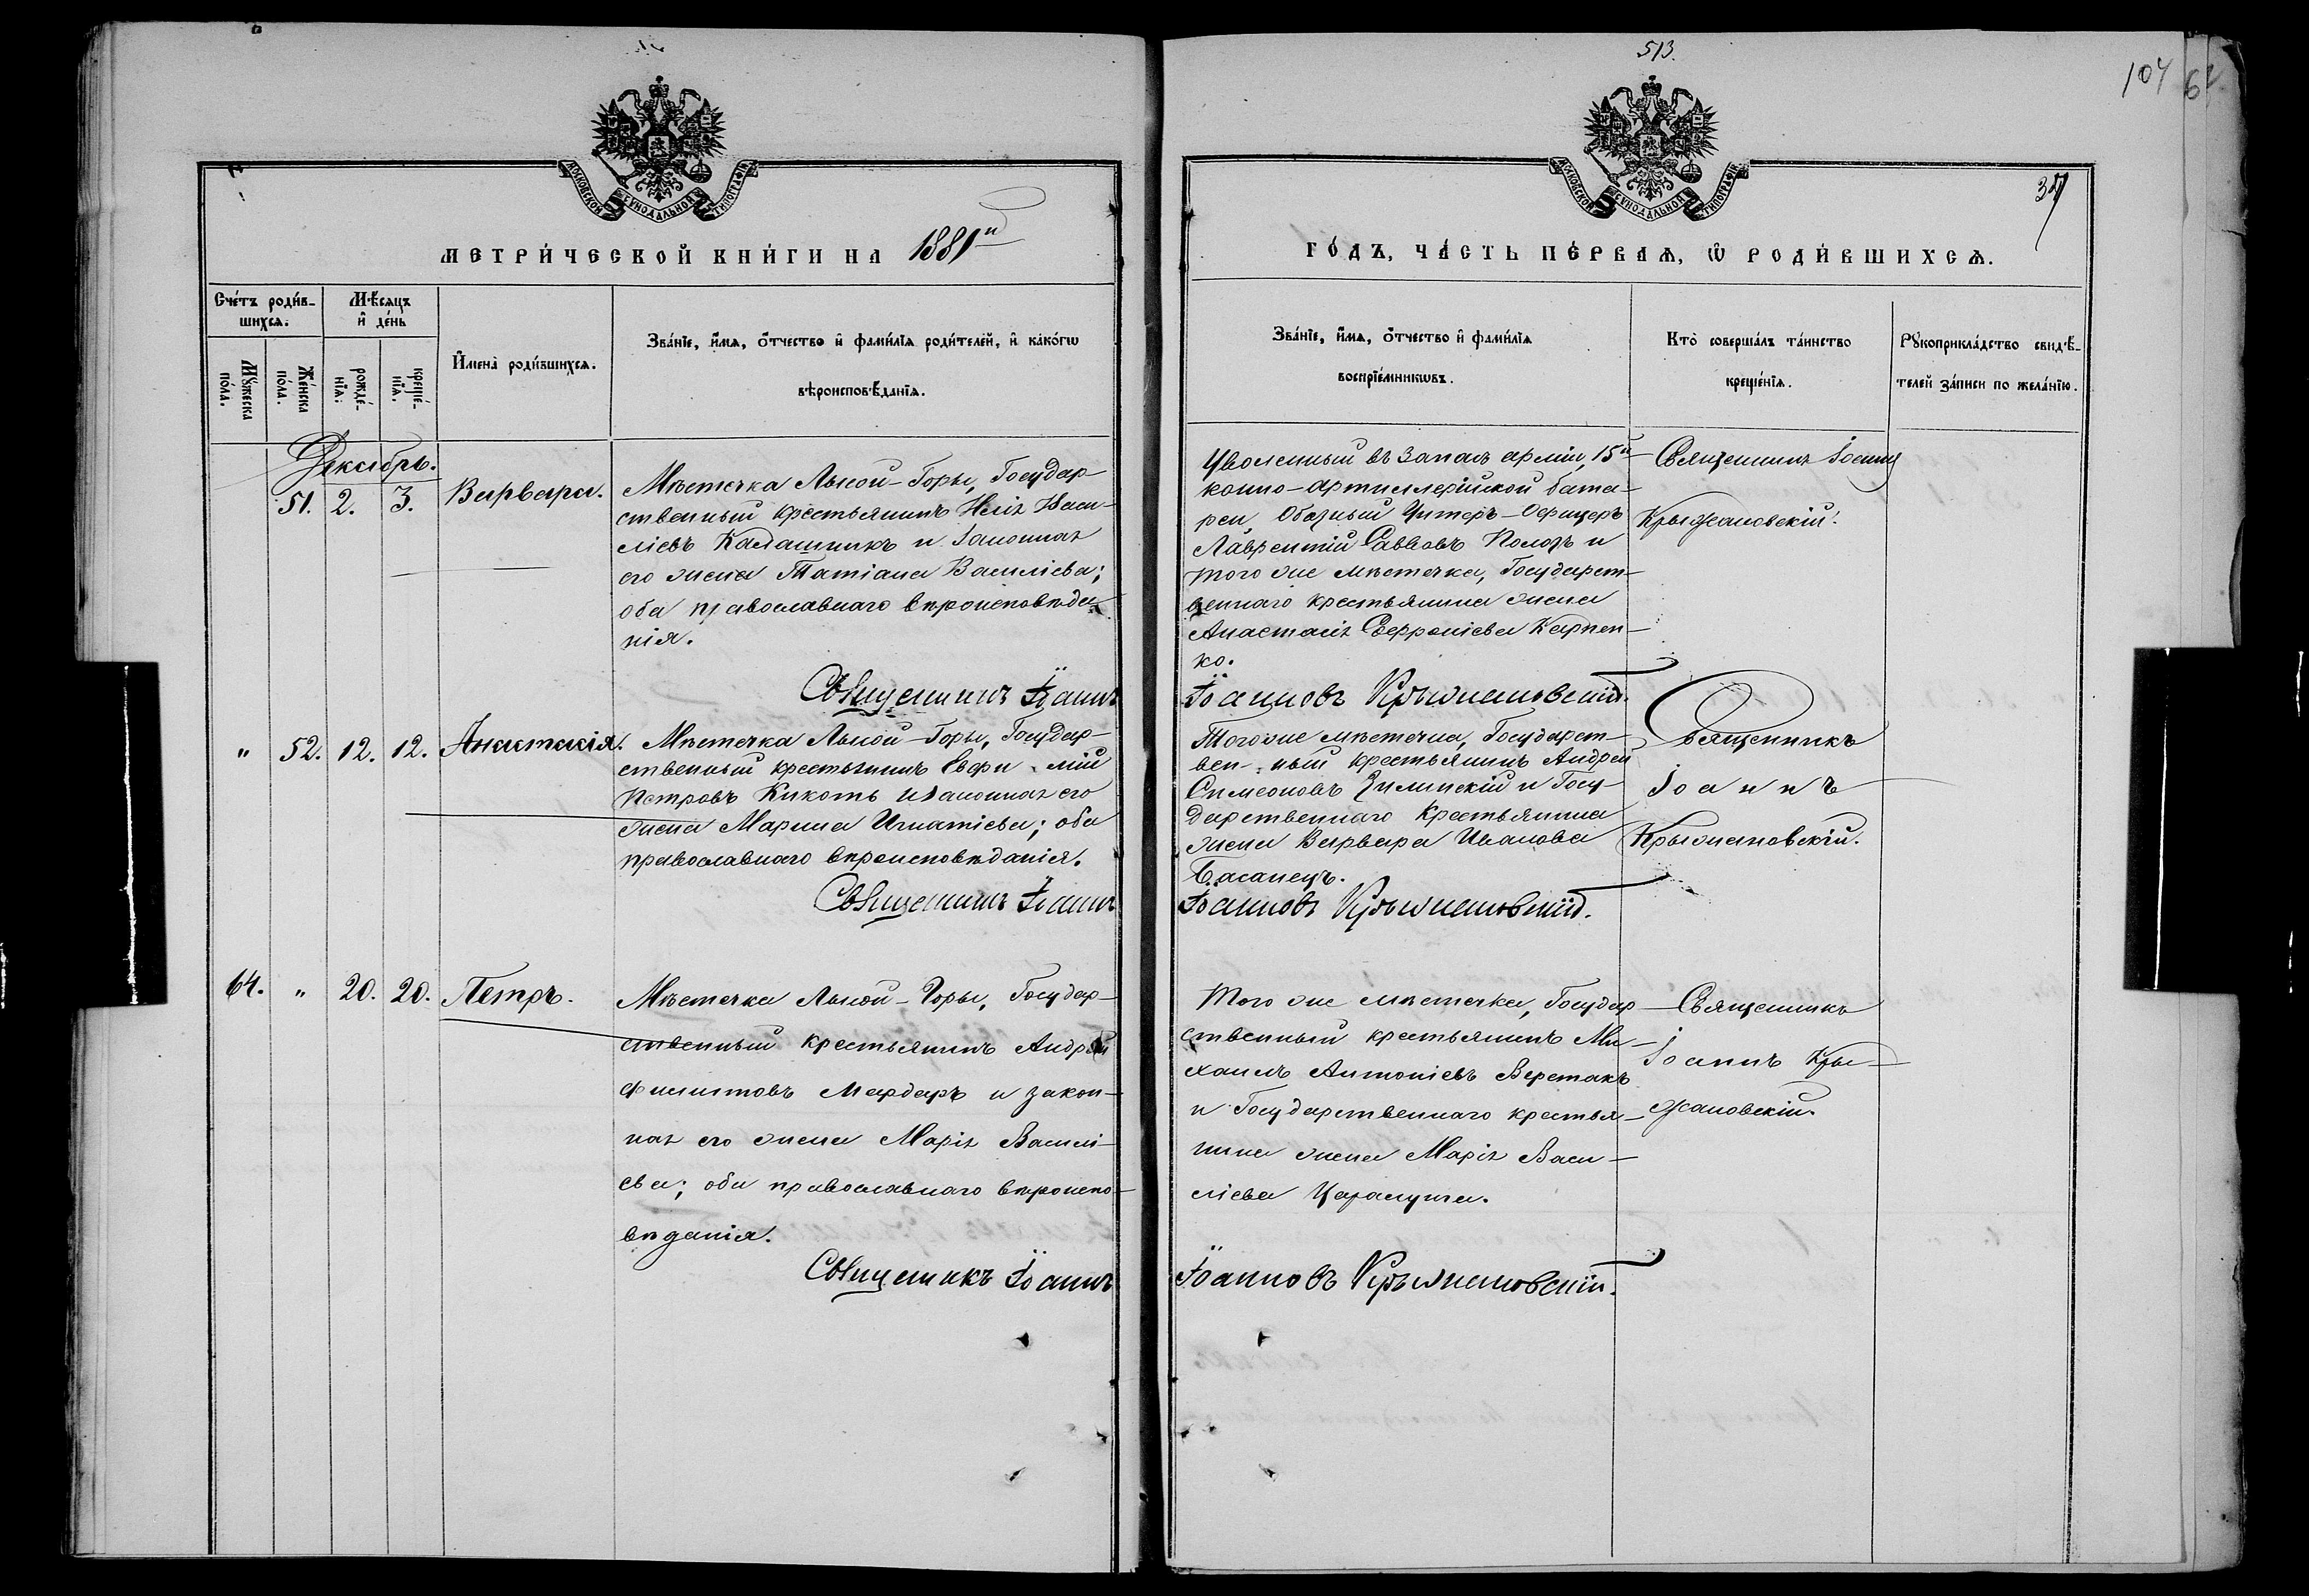 513.
104
62
37
МОСКОВСКОЙ СѴНОДАЛЬНОЙ ТИПОГРАФІИ
МОСКОВСКОЙ СѴНОДАЛЬНОЙ ТИПОГРАФІИ
МЕТРИ́ЧЕСКОЙ КНИ́ГИ НА 1881й
ГО́ДЪ, ЧА́СТЬ ПЕ́РВАѦ, Ѽ РОДИ́ВШИХСѦ.
Сче́тъ роди́в-
шихсѧ.
Мѣ́сѧцъ
и҆ де́нь
Мꙋ́жеска
по́ла.
Же́нска
по́ла.
рожде́-
нїѧ.
креще́-
нїѧ.
И҆мена̀ роди́вшихсѧ.
Зва́нїе, и҆́мѧ, ѻ҆́тчество и҆ фами́лїѧ роди́телей, и҆ како́гѡ
вѣроисповѣ́данїѧ.
Зва́нїе, и҆́мѧ, ѻ҆́тчество и҆ фами́лїѧ
воспрїе́мникѡвъ.
Кто̀ соверша́лъ та́инство
креще́нїѧ.
Рꙋкоприкла́дство свидѣ́-
телей за́писи по жела́нїю.
Декабрь.
51. 2. 3. Варвара.
Мѣстечка Лысой-Горы, Государ-
ственный крестьянинъ Илія Васи-
ліевъ Калашникъ и законная
его жена Татіана Василіева;
оба православнаго вѣроисповѣда-
нія.
Уволенный въ запасъ арміи, 15й
конно-артиллерійской бата-
реи, Обозный Унтеръ-Офицеръ
Лаврентій Саввовъ Полозъ и
того же мѣстечка, Государст-
веннаго крестьянина жена
Анастасія Карпен-
ко.
Священникъ Іоаннъ
Крыжановскій.
Священникъ Іоаннъ
Іоанновъ Крыжановскій.
" 52. 12. 12. Анастасія.
Мѣстечка Лысой-Горы, Государ-
ственный крестьянинъ Евфимій
Петровъ Кикоть и законная его
жена Марина Игнатіева; оба
православнаго вѣроисповѣданія.
Того же мѣстечка, Государст-
венный крестьянинъ Андрей
Симеоновъ Зилинскій и Госу-
дарственнаго крестьянина
жена Варвара Иванова
Басанецъ.
Священникъ
Іоаннъ
Крыжановскій.
Священникъ Іоаннъ
Іоанновъ Крыжановскій.
64. " 20. 20. Петръ.
Мѣстечка Лысой-Горы, Государ-
ственный крестьянинъ Андрей
Филиповъ Мардаръ и закон-
ная его жена Марія Василі-
ева; оба православнаго вѣроиспо-
вѣданія.
Того же мѣстечка, Государ-
ственный крестьянинъ Ми-
хаилъ Антоніевъ Веретакъ
и Государственнаго крестья-
нина жена Марія Васи-
ліева
Священникъ
Іоаннъ Кры-
жановскій.
Священникъ Іоаннъ
Іоанновъ Крыжановскій.